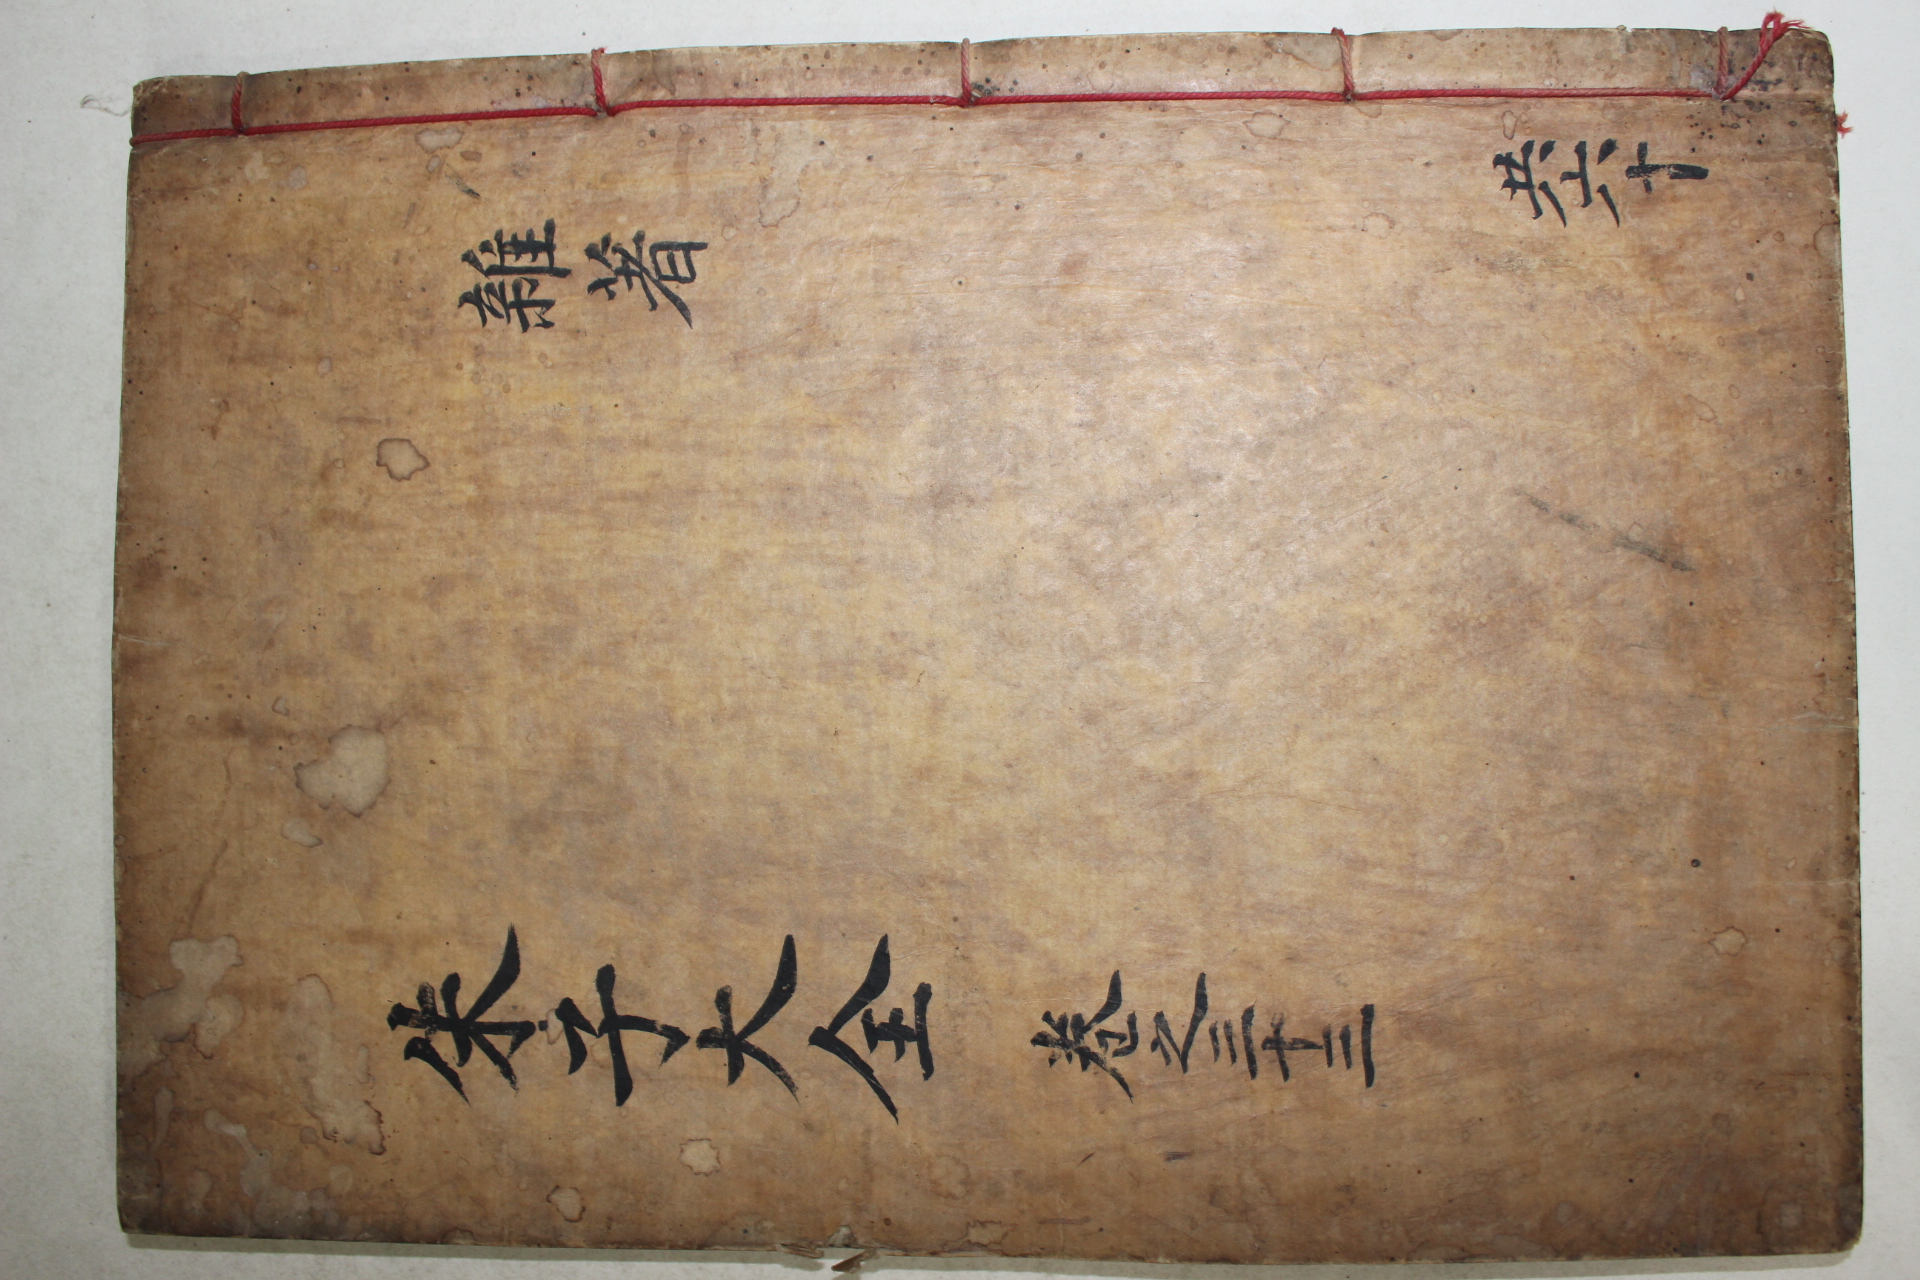 雜著
共六十
朱子大全 卷之三十三